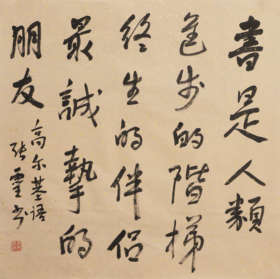 書是人類
進步的階梯
終生的伴侣
最誠摯的
朋友
高尔基语
张灵书